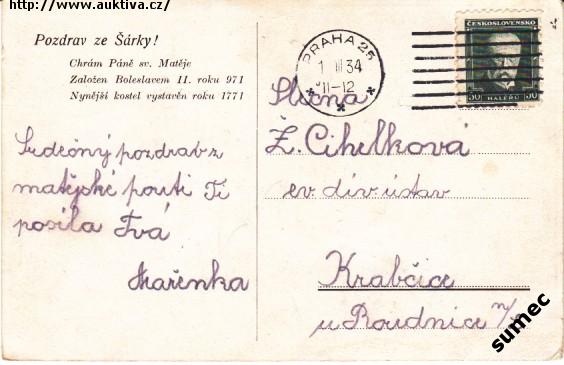 http://www.auktiva.cz/
Pozdrav ze Šárky!
Chrám Páně sv. Matěje
Založen Boleslavem II. roku 971
Nynější kostel vystavěn roku 1771
PRAHA 25
1 III 34
11-12
ČESKOSLOVENSKO
50 HALÉŘŮ 50
Srdečný pozdrav z
matějské pouti Ti
posílá Tvá
Mařenka
Slečna
Ž. Cihelková
ev. dív. ústav
Krabčice
u Roudnice n/
sumec